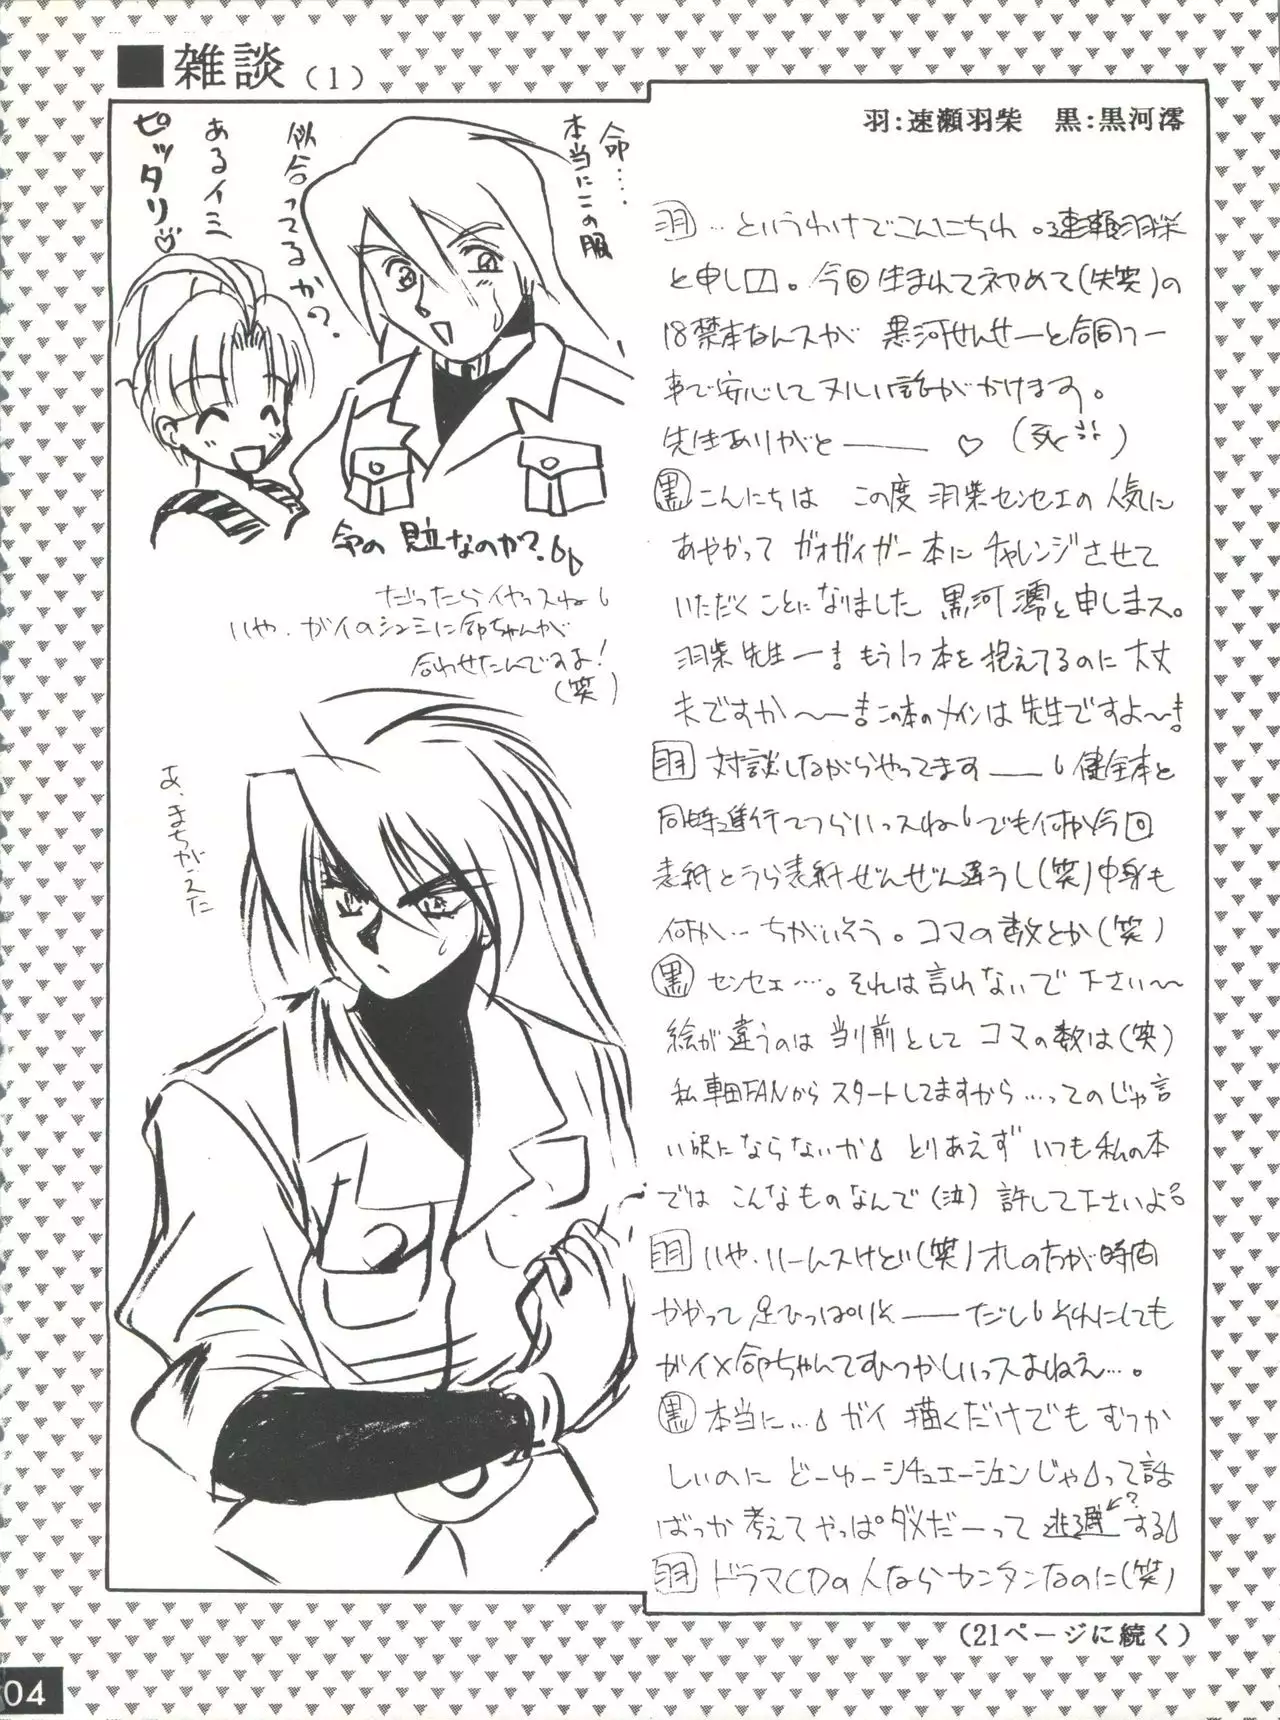 ■雑談（1）
命‥‥
本当にこの服
似合ってるか?
あるイミ
ピッタリ♡
命の見立なのか?
だったらイヤっスね
いや、ガイのシュミに命ちゃんが
合わせたんですよ!
(笑)
あ、まちがえた
羽:速瀬羽柴　黒:黒河澪
羽 …というわけでこんにちわ。速瀬羽柴
と申し口。今回生まれて初めて(失笑)の
18禁本なんスが 黒河せんせーと合同ワー
事で安心してヌルい話がかけます。
先生ありがと―― ♡ (死!!)
黒 こんにちは この度 羽柴センセエの人気に
あやかって ガオガイガー本に チャレンジさせて
いただくことになりました 黒河澪と申しまス。
羽柴先生ー! もう1つ本を抱えてるのに大丈
夫ですか〜―! この本のメインは先生ですよ〜!
羽 対談しながらやってます―― 健全本と
同時進行てつらいっスね でも何か今回
表紙とうら表紙ぜんぜん違うし(笑)中身も
何か… ちがいそう。コマの数とか(笑)
黒 センセェ…。それは言わないで下さい〜
絵が違うのは当り前として コマの数は(笑)
私 車田FANからスタートしてますから…ってのじゃ言
い訳にならないか とりあえず いつも私の本
では こんなものなんで(泣) 許して下さいよ
羽 いや、いーんスけどど(笑)オレの方が時間
かかって 足ひっぱりそ――だし それにしても
ガイ×命ちゃんてむつかしいっスよねえ…。
黒 本当に… ガイ 描くだけでも むつか
しいのに どーゆーシチュエーションじゃ って話
ばっか考えて やっぱダメだーって 逃避?する
羽 ドラマCDの人ならカンタンなのに(笑)
(21ページに続く)
04